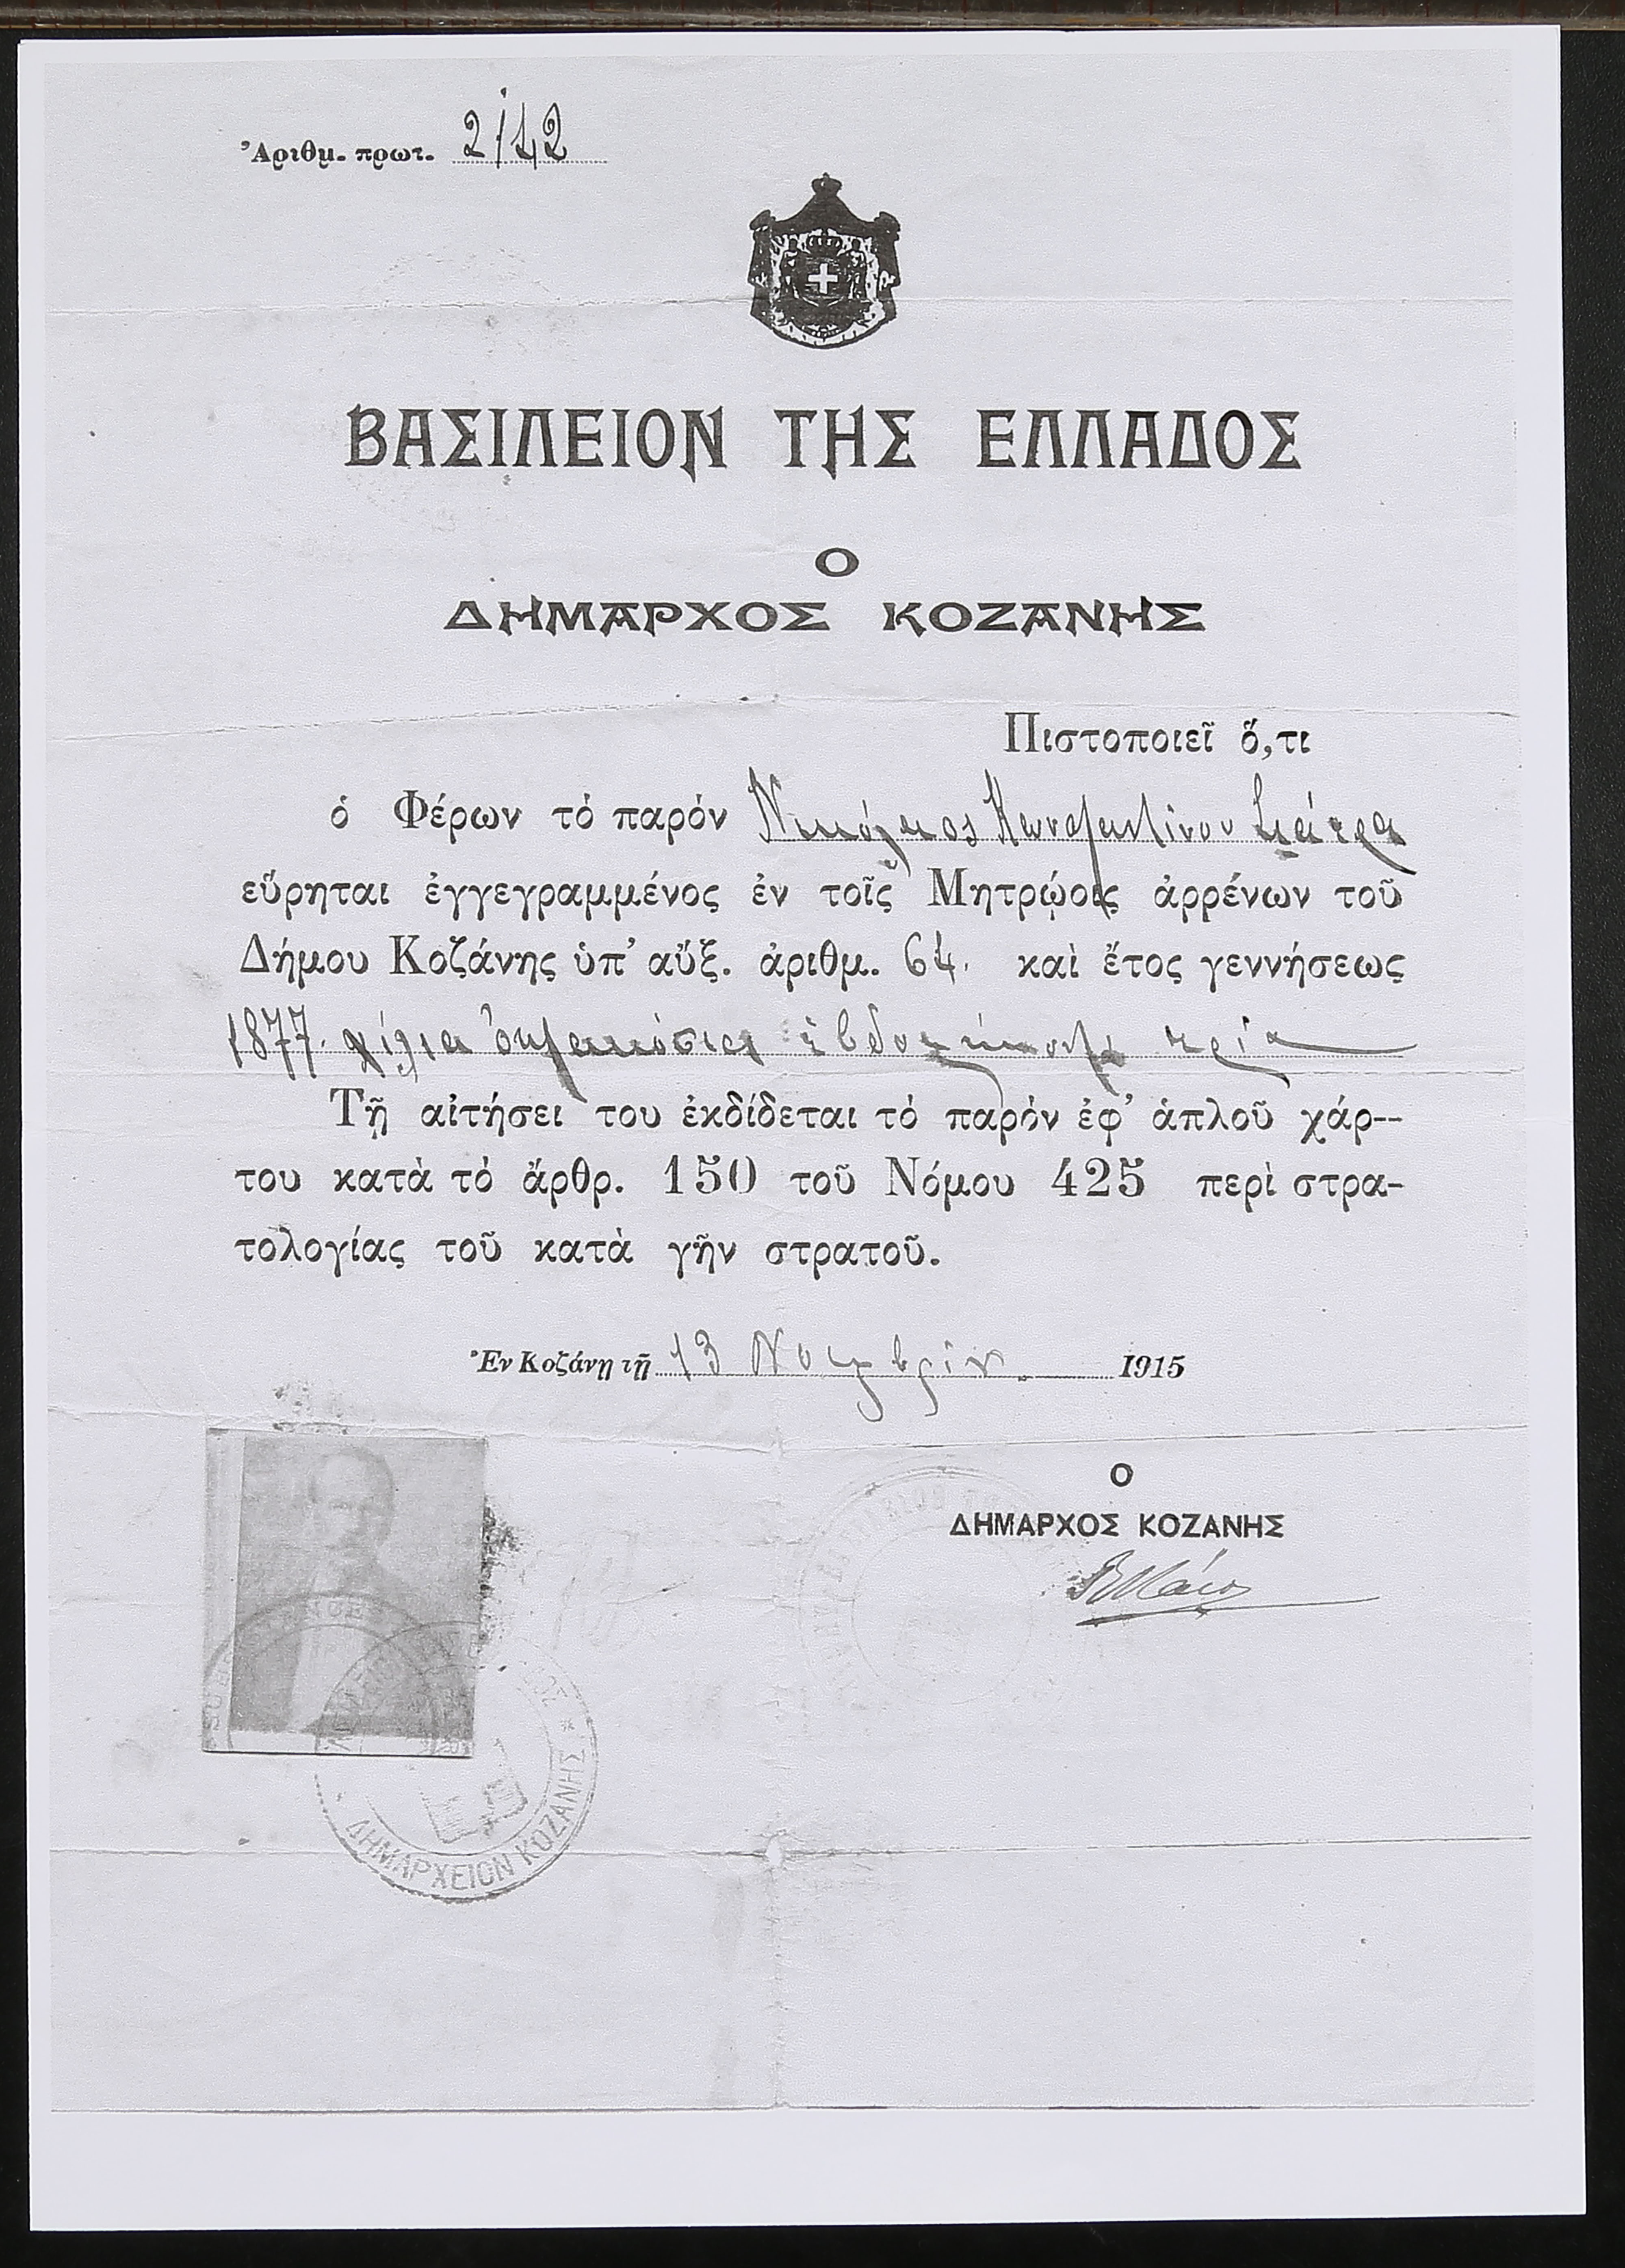 Ἀριθμ. πρωτ. 2142
ΒΑΣΙΛΕΙΟΝ ΤΗΣ ΕΛΛΑΔΟΣ
Ο
ΔΗΜΑΡΧΟΣ ΚΟΖΑΝΗΣ
Πιστοποιεῖ ὅ,τι
ὁ Φέρων τὸ παρὸν Νικόλαος Κωνσταντίνου
εὕρηται ἐγγεγραμμένος ἐν τοῖς Μητρῴοις ἀρρένων τοῦ
Δήμου Κοζάνης ὑπ' αὔξ. ἀριθμ. 64. καὶ ἔτος γεννήσεως
1877. χίλια ὀκτακόσια ἑβδομήκοντα τρία
Τῇ αἰτήσει του ἐκδίδεται τὸ παρὸν ἐφ' ἁπλοῦ χάρ--
του κατὰ τὸ ἄρθρ. 150 τοῦ Νόμου 425 περὶ στρα-
τολογίας τοῦ κατὰ γῆν στρατοῦ.
Ἐν Κοζάνῃ τῇ 13 Νοεμβρίου 1915
Ο
ΔΗΜΑΡΧΟΣ ΚΟΖΑΝΗΣ
ΔΗΜΑΡΧΕΙΟΝ ΚΟΖΑΝΗΣ